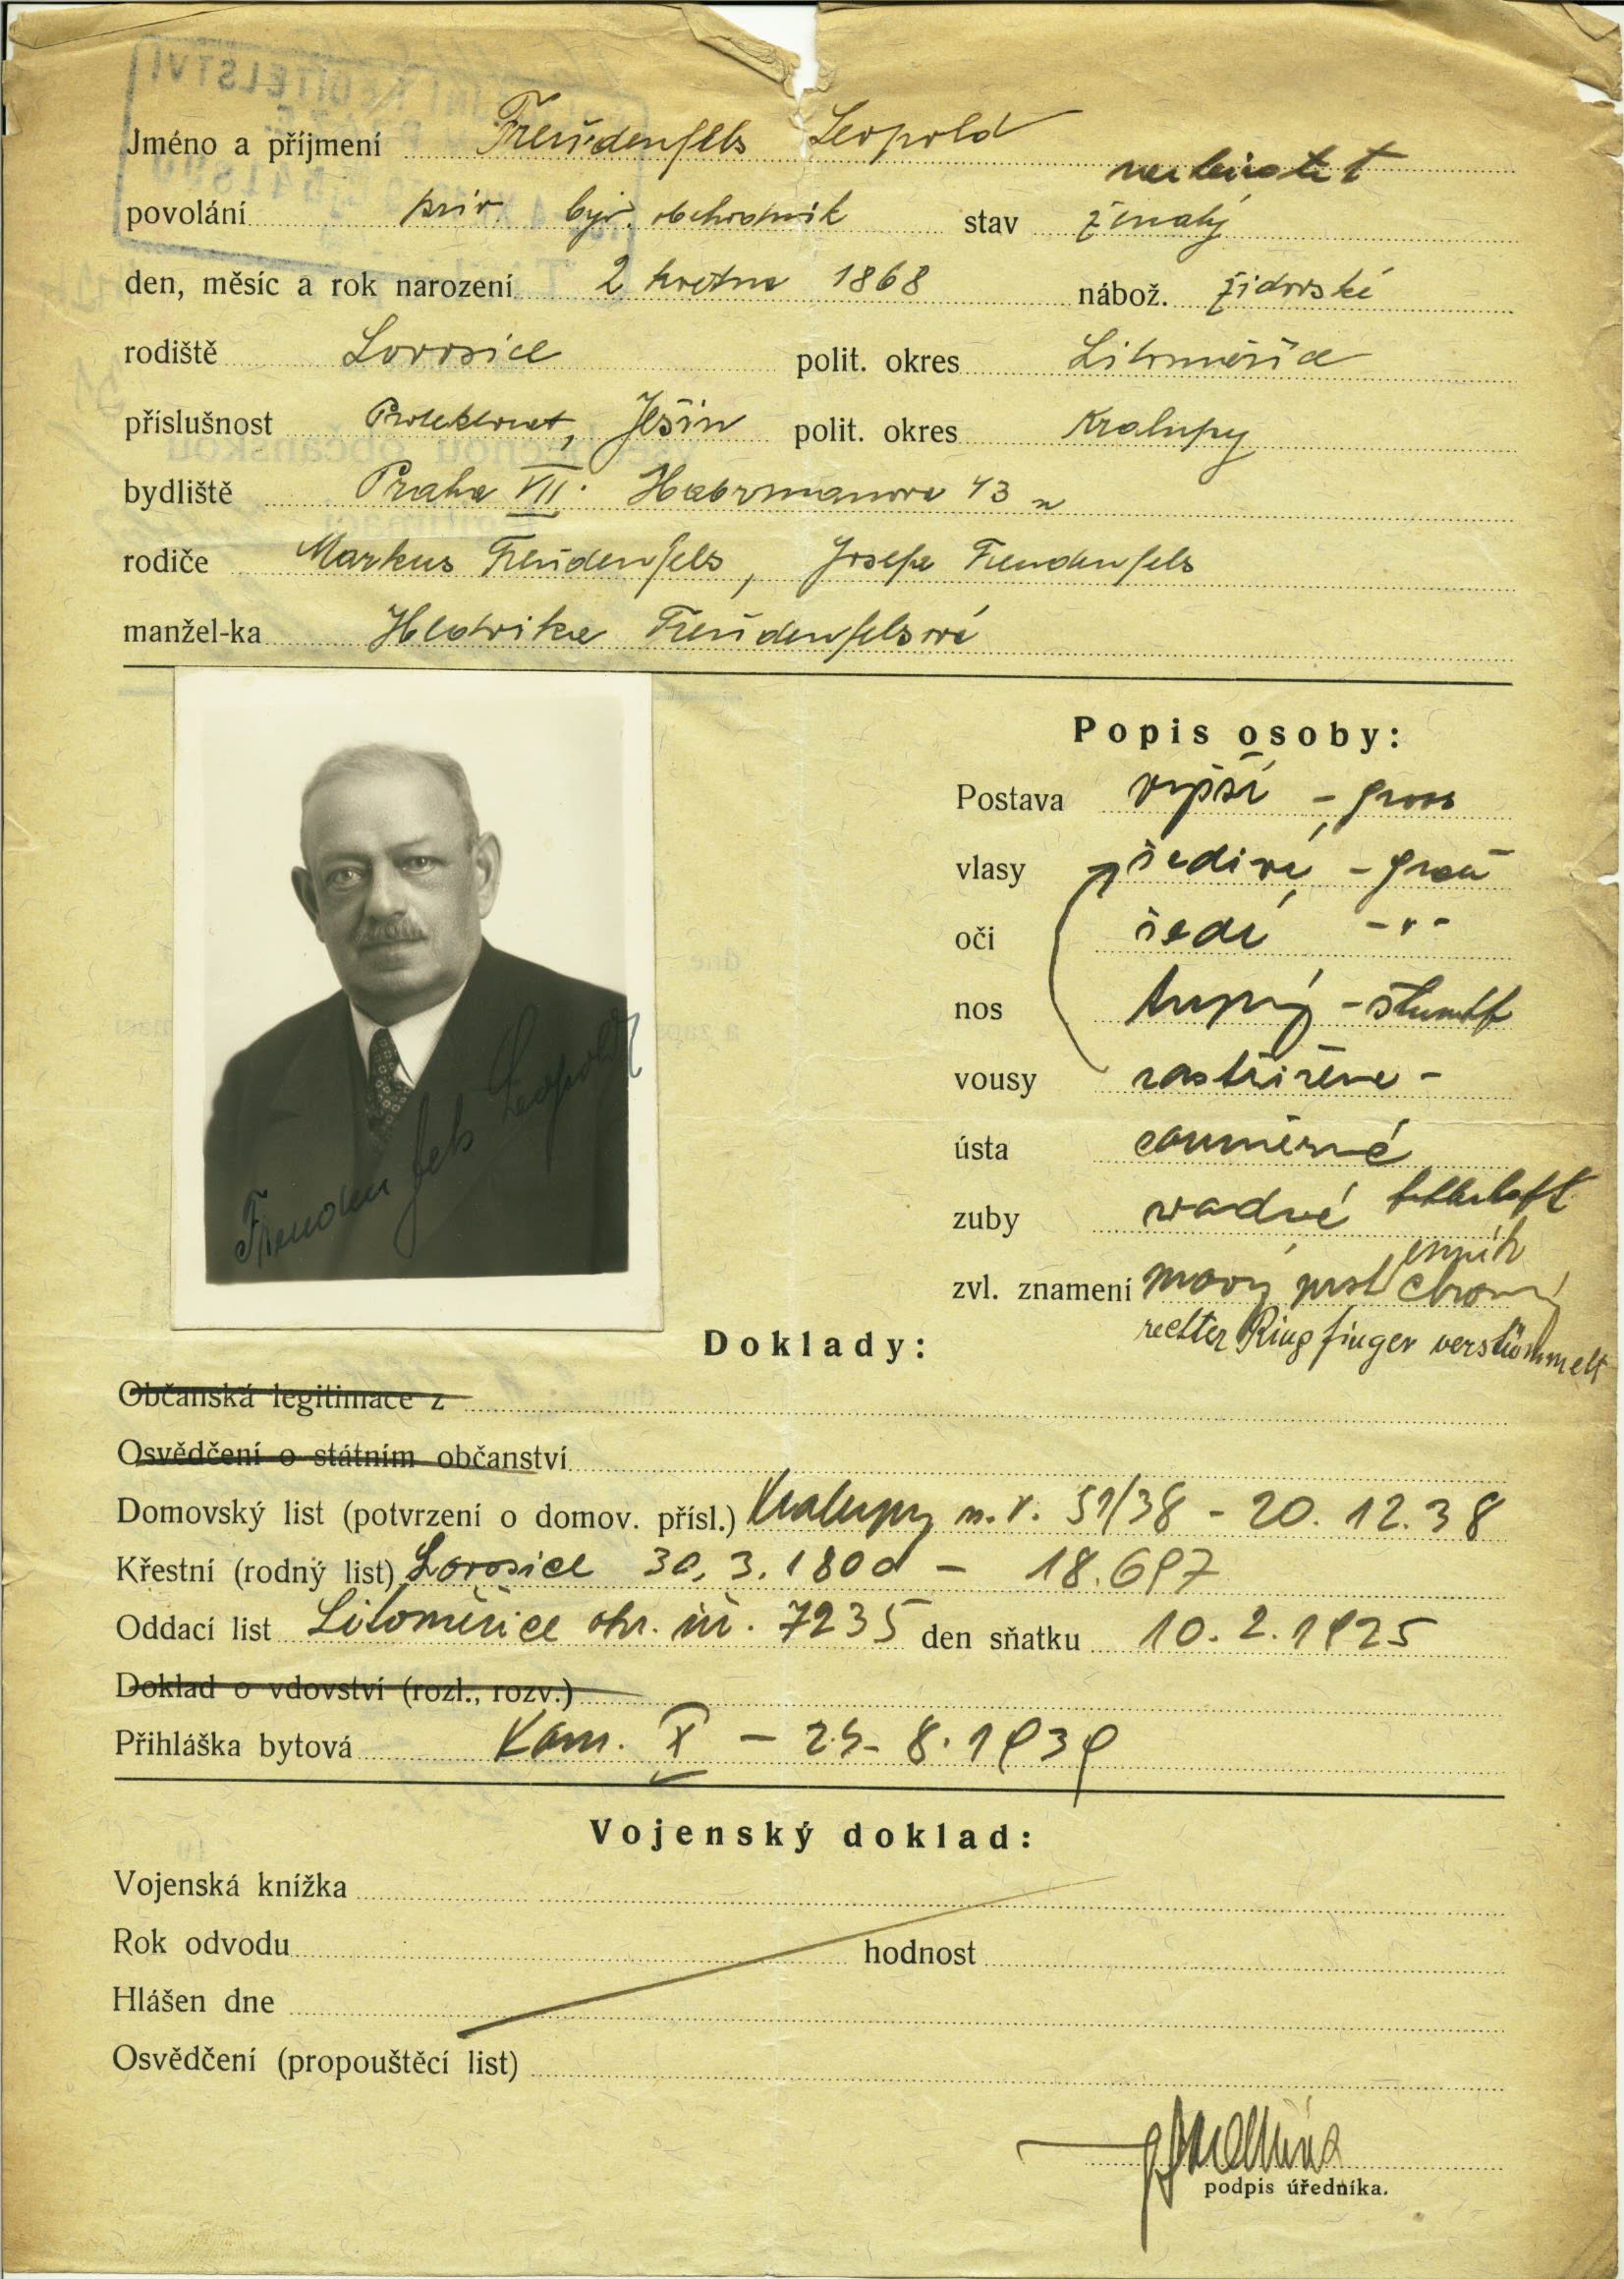 Jméno a příjmení Freudenfels Leopold
verheiratet
povolání priv. býv. obchodník stav ženatý
den, měsíc a rok narození 2 května 1868 nábož. židovské
rodiště Lovosice polit. okres Litoměřice
příslušnost Protektorat, Ješín polit. okres Kralupy
bydliště Praha VII. Habrmanova 43
rodiče Markus Freudenfels, Josefa Freudenfels
manžel-ka Hedvika Freudenfelsová
Popis osoby:
Postava vyšší - gross
vlasy šedivé - grau
oči šedé - " -
nos tupý - stumpf
vousy zastřižené -
ústa souměrné
zuby vadné
zvl. znamení pravý prst chromý
rechter Ringfinger verstümmelt
Freudenfels Leopold
Doklady:
Občanská legitimace z
Osvědčení o státním občanství
Domovský list (potvrzení o domov. přísl.) Kralupy n. V. 51/38 - 20. 12. 38
Křestní (rodný list) Lovosice 30. 3. - 18.697
Oddací list Litoměřice 7235 den sňatku 10. 2. 1925
Doklad o vdovství (rozl., rozv.)
Přihláška bytová Kom. X - 25. 8. 1939
Vojenský doklad:
Vojenská knížka
Rok odvodu hodnost
Hlášen dne
Osvědčení (propouštěcí list)
podpis úředníka.